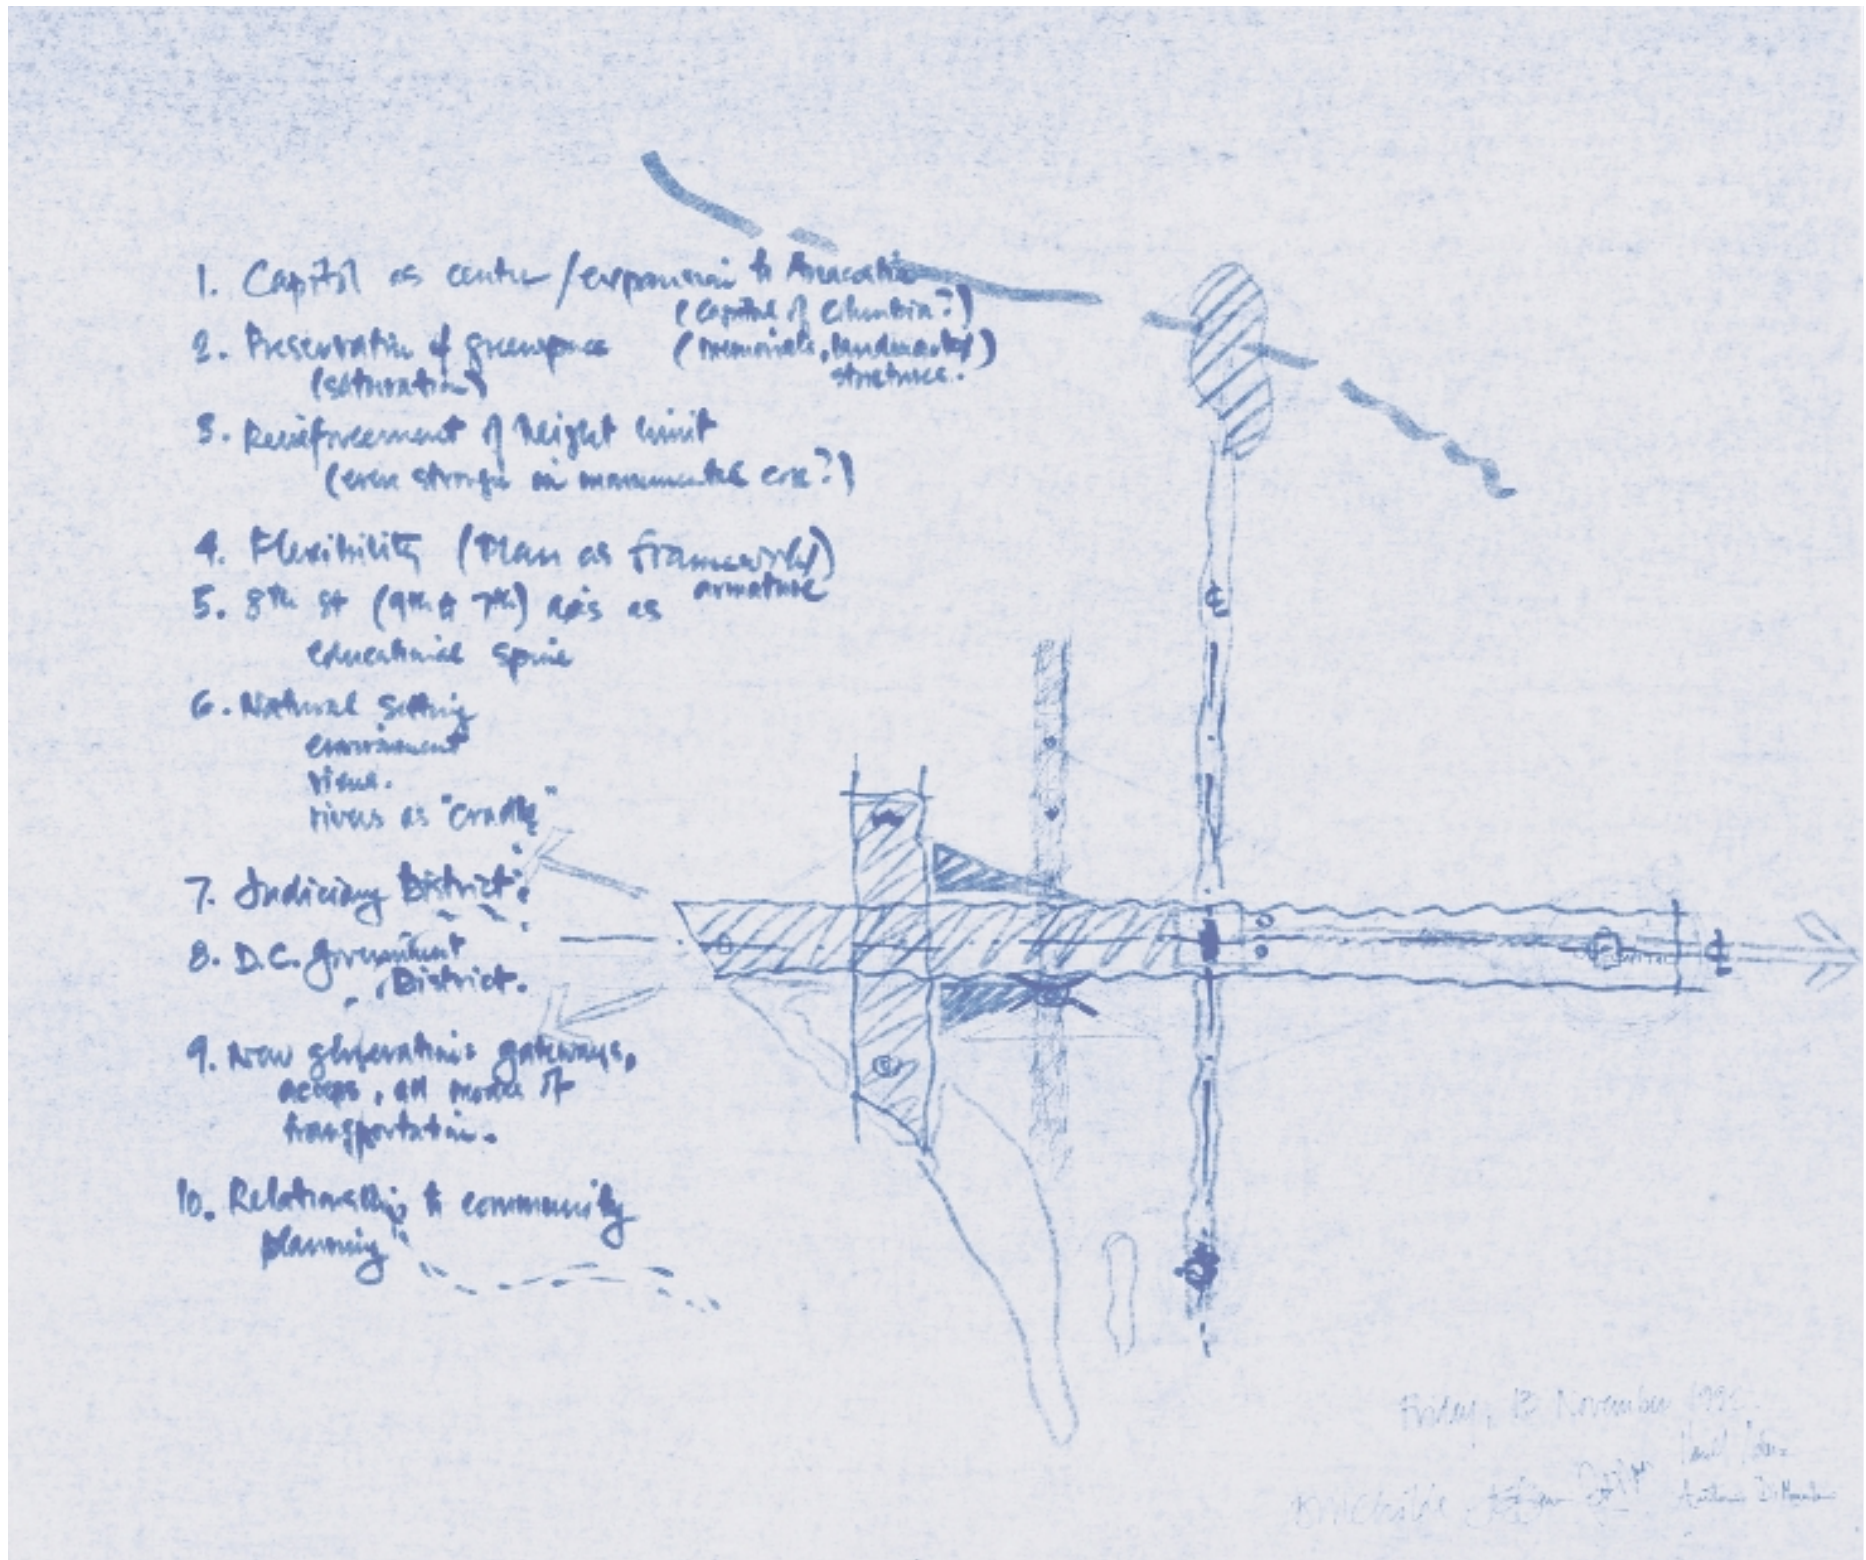 1. Capitol as center / expansion to Anacostia
(Capital of Columbia?)
2. Preservation of greenspace (memorials, landmarks)
(saturation) structures.
3. Reinforcement of height limit
(even stronger in monumental core?)
4. Flexibility (Plan as framework)
armature
5. 8th St (9th & 7th) axis as
educational spine
6. Natural setting
environment
views.
rivers as "cradle"
7. Judiciary District.
8. D.C. Government
District.
9. New generations gateways,
access, all modes of
transportation.
10. Relationship to community
planning
Friday, 13 November